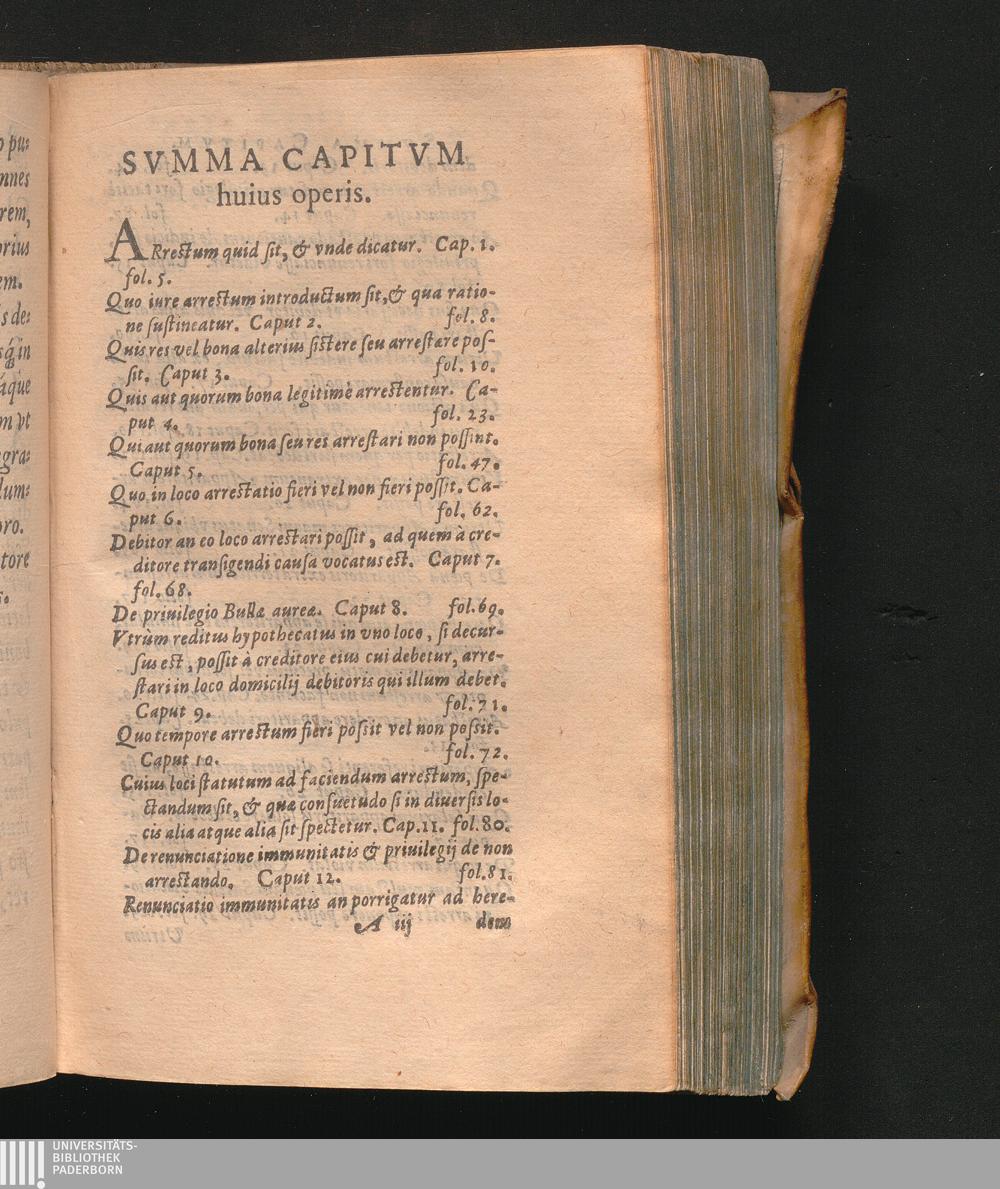 o pu:
nnes
rem,
orius
em.
s de:
in
áque
m vt
gra:
lum:
oro.
tore
SVMMA CAPITVM
huius operis.
ARrestum quid sit, & vnde dicatur. Cap. 1.
fol. 5.
Quo iure arrestum introductum sit, & qua ratio-
ne sustineatur. Caput 2. fol. 8.
Quis res vel bona alterius sistere seu arrestare pos-
sit. Caput 3. fol. 10.
Quis aut quorum bona legitimè arrestentur. Ca-
put 4. fol. 23.
Qui aut quorum bona seu res arrestari non possint.
Caput 5. fol. 47.
Quo in loco arrestatio fieri vel non fieri possit. Ca-
put 6. fol. 62.
Debitor an eo loco arrestari possit, ad quem à cre-
ditore transigendi causa vocatus est. Caput 7.
fol. 68.
De priuilegio Bullæ aureæ. Caput 8. fol. 69.
Vtrùm reditus hypothecatus in vno loco, si decur-
sus est, possit à creditore eius cui debetur, arre-
stari in loco domicilij debitoris qui illum debet.
Caput 9. fol. 71.
Quo tempore arrestum fieri possit vel non possit.
Caput 10. fol. 72.
Cuius loci statutum ad faciendum arrestum, spe-
ctandum sit, & quæ consuetudo si in diuersis lo-
cis alia atque alia sit spectetur. Cap. 11. fol. 80.
De renunciatione immunitatis & priuilegij de non
arrestando. Caput 12. fol. 81.
Renunciatio immunitatis an porrigatur ad here-
A iij dem
UNIVERSITÄTS-
BIBLIOTHEK
PADERBORN